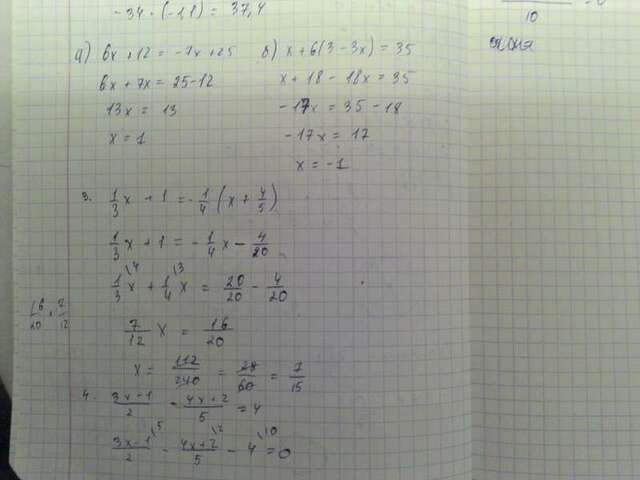 -34 · (-1,1) = 37,4
а) 6x + 12 = -7x + 25
6x + 7x = 25 - 12
13x = 13
x = 1
б) x + 6(3 - 3x) = 35
x + 18 - 18x = 35
-17x = 35 - 18
-17x = 17
x = -1
3. 1/3 x + 1 = -1/4 (x + 4/5)
1/3 x + 1 = -1/4 x - 4/20
1/3 \4 x + 1/4 \3 x = 20/20 - 4/20
7/12 x = 16/20
x = 112/240 = 28/60 = 7/15
16/20 · 7/12
4. (3x - 1)/2 - (4x + 2)/5 = 4
(3x - 1)/2 \5 - (4x + 2)/5 \2 - 4 \10 = 0
10